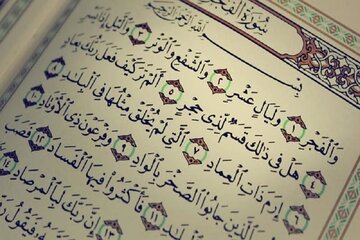 سُورَةُ الْفَجْرِ
بِسْمِ اللَّهِ الرَّحْمَٰنِ الرَّحِيمِ
وَالْفَجْرِ ١ وَلَيَالٍ عَشْرٍ ٢ وَالشَّفْعِ وَالْوَتْرِ ٣ وَاللَّيْلِ إِذَا يَسْرِ
٤ هَلْ فِي ذَٰلِكَ قَسَمٌ لِذِي حِجْرٍ ٥ أَلَمْ تَرَ كَيْفَ فَعَلَ رَبُّكَ بِعَادٍ
٦ إِرَمَ ذَاتِ الْعِمَادِ ٧ الَّتِي لَمْ يُخْلَقْ مِثْلُهَا فِي الْبِلَٰدِ ٨
الَّذِينَ جَابُوا الصَّخْرَ بِالْوَادِ ٩ وَفِرْعَوْنَ ذِي الْأَوْتَادِ ١٠
الْبِلَٰدِ ١١ فَأَكْثَرُوا فِيهَا الْفَسَادَ ١٢ فَصَبَّ
إِنَّ رَبَّكَ لَبِالْمِرْصَادِ
فَيَقُولُ